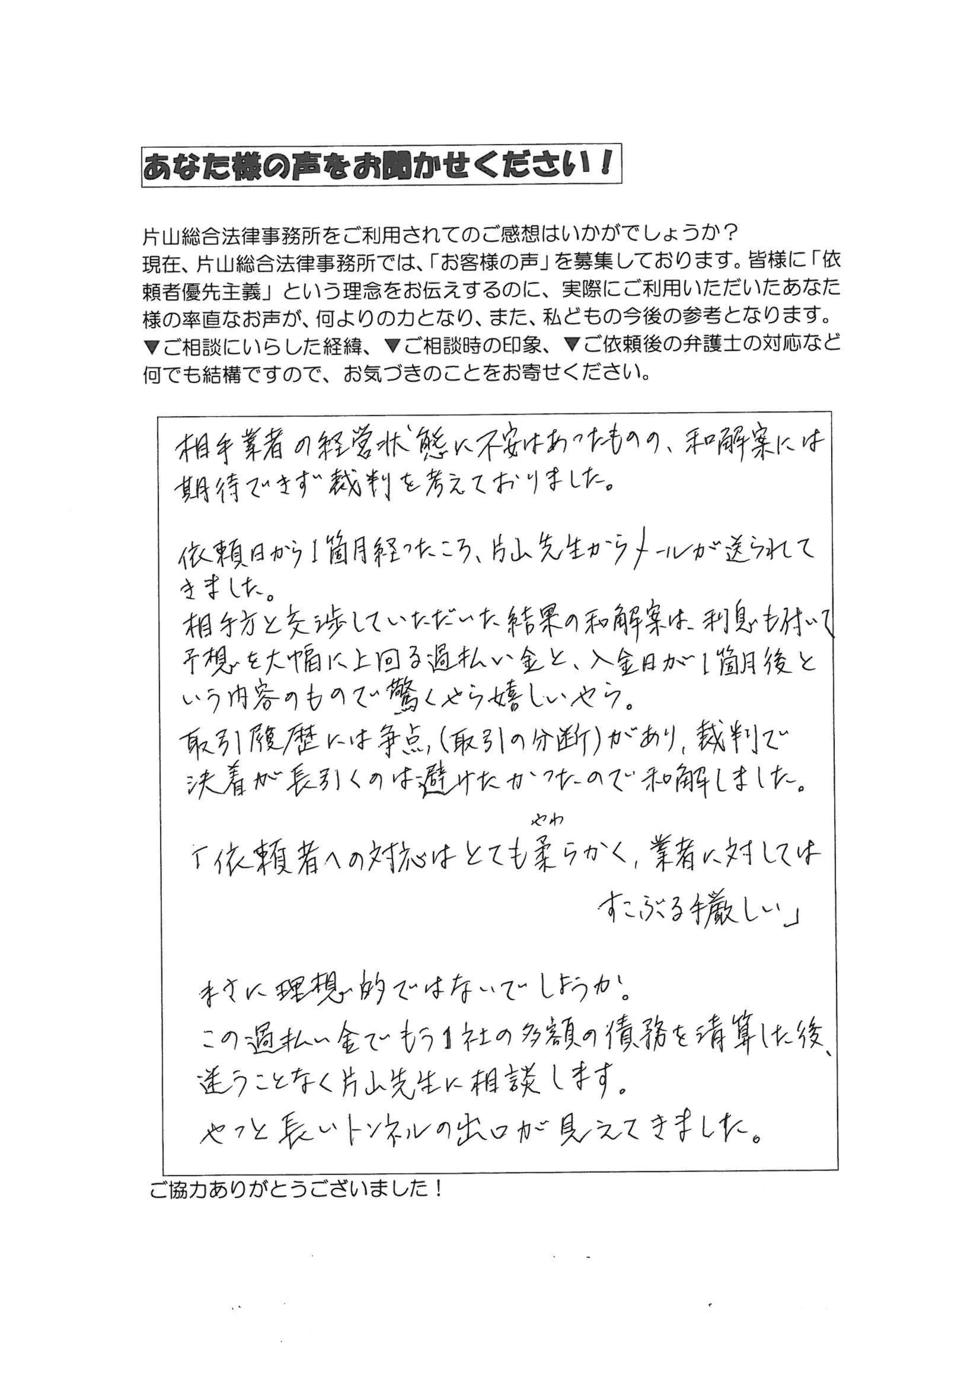 あなた様の声をお聞かせください！
片山総合法律事務所をご利用されてのご感想はいかがでしょうか？
現在、片山総合法律事務所では、「お客様の声」を募集しております。皆様に「依
頼者優先主義」という理念をお伝えするのに、実際にご利用いただいたあなた
様の率直なお声が、何よりの力となり、また、私どもの今後の参考となります。
▼ご相談にいらした経緯、▼ご相談時の印象、▼ご依頼後の弁護士の対応など
何でも結構ですので、お気づきのことをお寄せください。
相手業者の経営状態に不安はあったものの、和解案には
期待できず裁判を考えておりました。
依頼日から1箇月経ったころ、片山先生からメールが送られて
きました。
相手方と交渉していただいた結果の和解案は、利息も付いて
予想を大幅に上回る過払い金と、入金日が1箇月後と
いう内容のもので驚くやら嬉しいやら。
取引履歴には争点(取引の分断)があり、裁判で
決着が長引くのは避けたかったので和解しました。
「依頼者への対応はとても柔らかく、業者に対しては
やわ
すこぶる手厳しい」
まさに理想的ではないでしょうか。
この過払い金でもう1社の多額の債務を清算した後、
迷うことなく片山先生に相談します。
やっと長いトンネルの出口が見えてきました。
ご協力ありがとうございました！